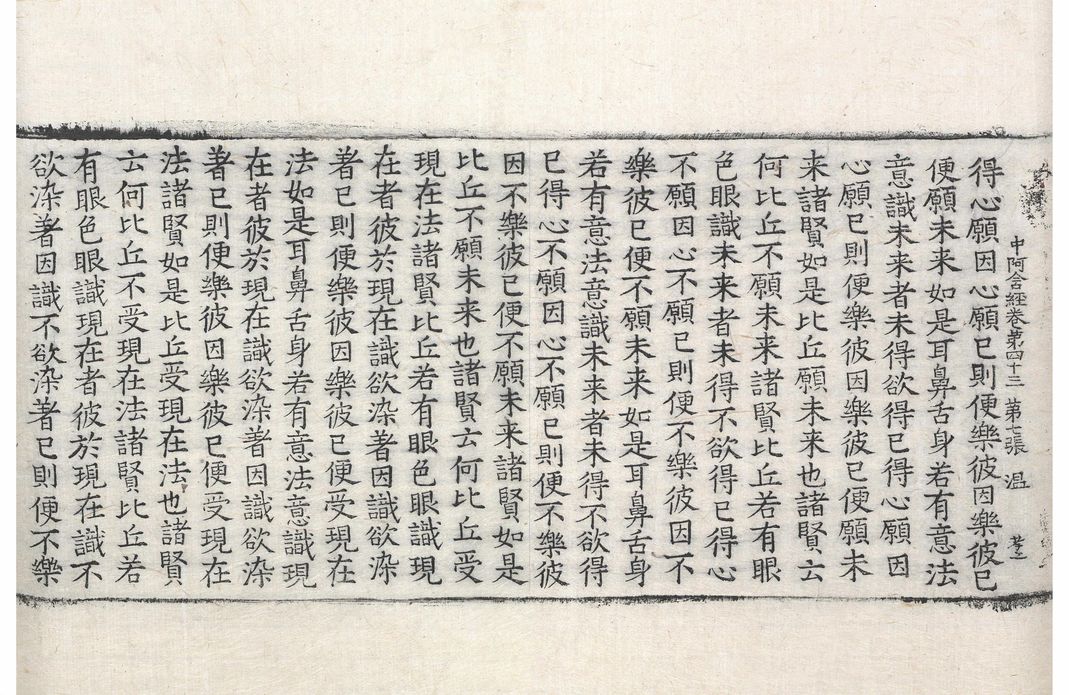 中阿含經卷第四十三 第七張 温
得心願因心願已則便樂彼因樂彼已
便願未来如是耳鼻舌身若有意法
意識未来者未得欲得已得心願因
心願已則便樂彼因樂彼已便願未
来諸賢如是比丘願未来也諸賢云
何比丘不願未来諸賢比丘若有眼
色眼識未来者未得不欲得已得心
不願因心不願已則便不樂彼因不
樂彼已便不願未来如是耳鼻舌身
若有意法意識未来者未得不欲得
已得心不願因心不願已則便不樂彼
因不樂彼已便不願未来諸賢如是
比丘不願未来也諸賢云何比丘受
現在法諸賢比丘若有眼色眼識現
在者彼於現在識欲染著因識欲染
著已則便樂彼因樂彼已便受現在
法如是耳鼻舌身若有意法意識現
在者彼於現在識欲染著因識欲染
著已則便樂彼因樂彼已便受現在
法諸賢如是比丘受現在法也諸賢
云何比丘不受現在法諸賢比丘若
有眼色眼識現在者彼於現在識不
欲染著因識不欲染著已則便不樂